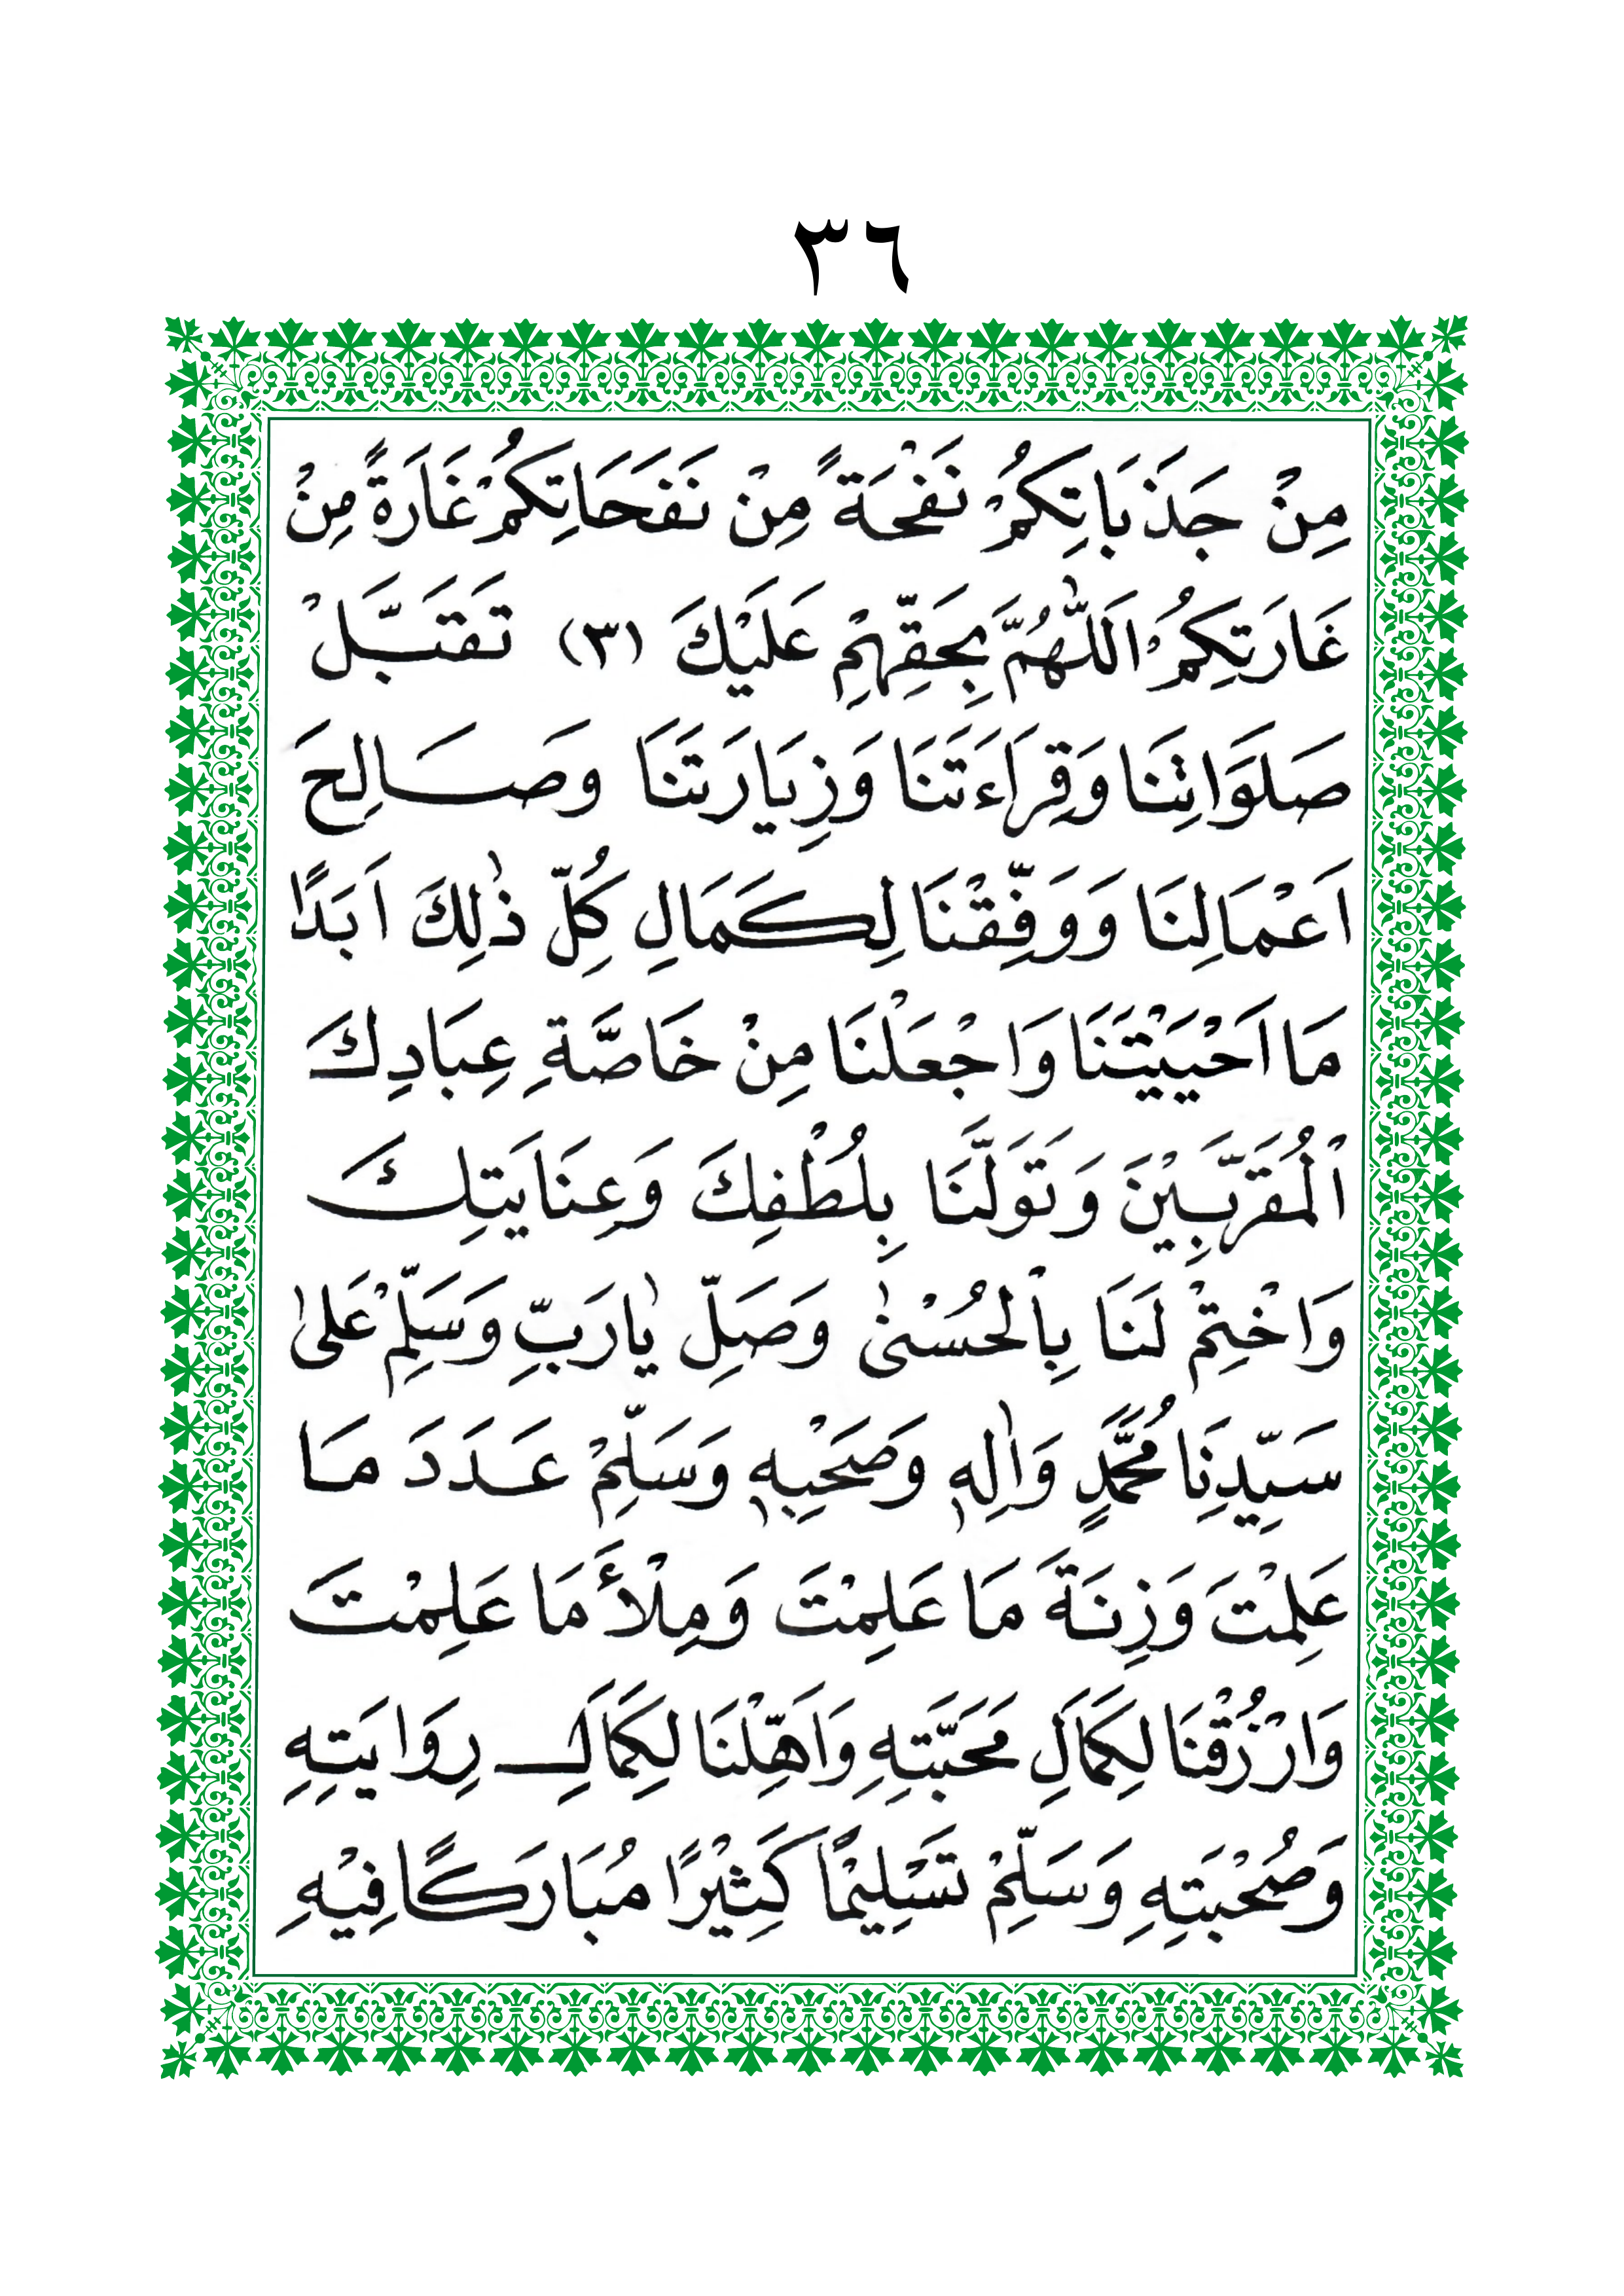 ٣٦
مِنْ جَذَبَاتِكُمْ نَفْحَةً مِنْ نَفَحَاتِكُمْ غَارَةً مِنْ
غَارَتِكُمْ اَللّٰهُمَّ بِحَقِّهِمْ عَلَيْكَ (٣) تَقَبَّلْ
صَلَوَاتِنَا وَقِرَاءَتَنَا وَزِيَارَتَنَا وَصَالِحَ
اَعْمَالِنَا وَوَفِّقْنَا لِكَمَالِ كُلِّ ذٰلِكَ اَبَدًا
مَا اَحْيَيْتَنَا وَاجْعَلْنَا مِنْ خَاصَّةِ عِبَادِكَ
الْمُقَرَّبِيْنَ وَتَوَلَّنَا بِلُطْفِكَ وَعِنَايَتِكَ
وَاخْتِمْ لَنَا بِالْحُسْنٰى وَصَلِّ يٰارَبِّ وَسَلِّمْ عَلىٰ
سَيِّدِنَا مُحَمَّدٍ وَاٰلِهٖ وَصَحْبِهٖ وَسَلِّمْ عَدَدَ مَا
عَلِمْتَ وَزِنَةَ مَا عَلِمْتَ وَمِلْأَ مَا عَلِمْتَ
وَارْزُقْنَا لِكَمَالِ مَحَبَّتِهِ وَاَهِّلْنَا لِكَمَالِ رِوَايَتِهِ
وَصُحْبَتِهِ وَسَلِّمْ تَسْلِيْمًا كَثِيْرًا مُبَارَكًا فِيْهِ